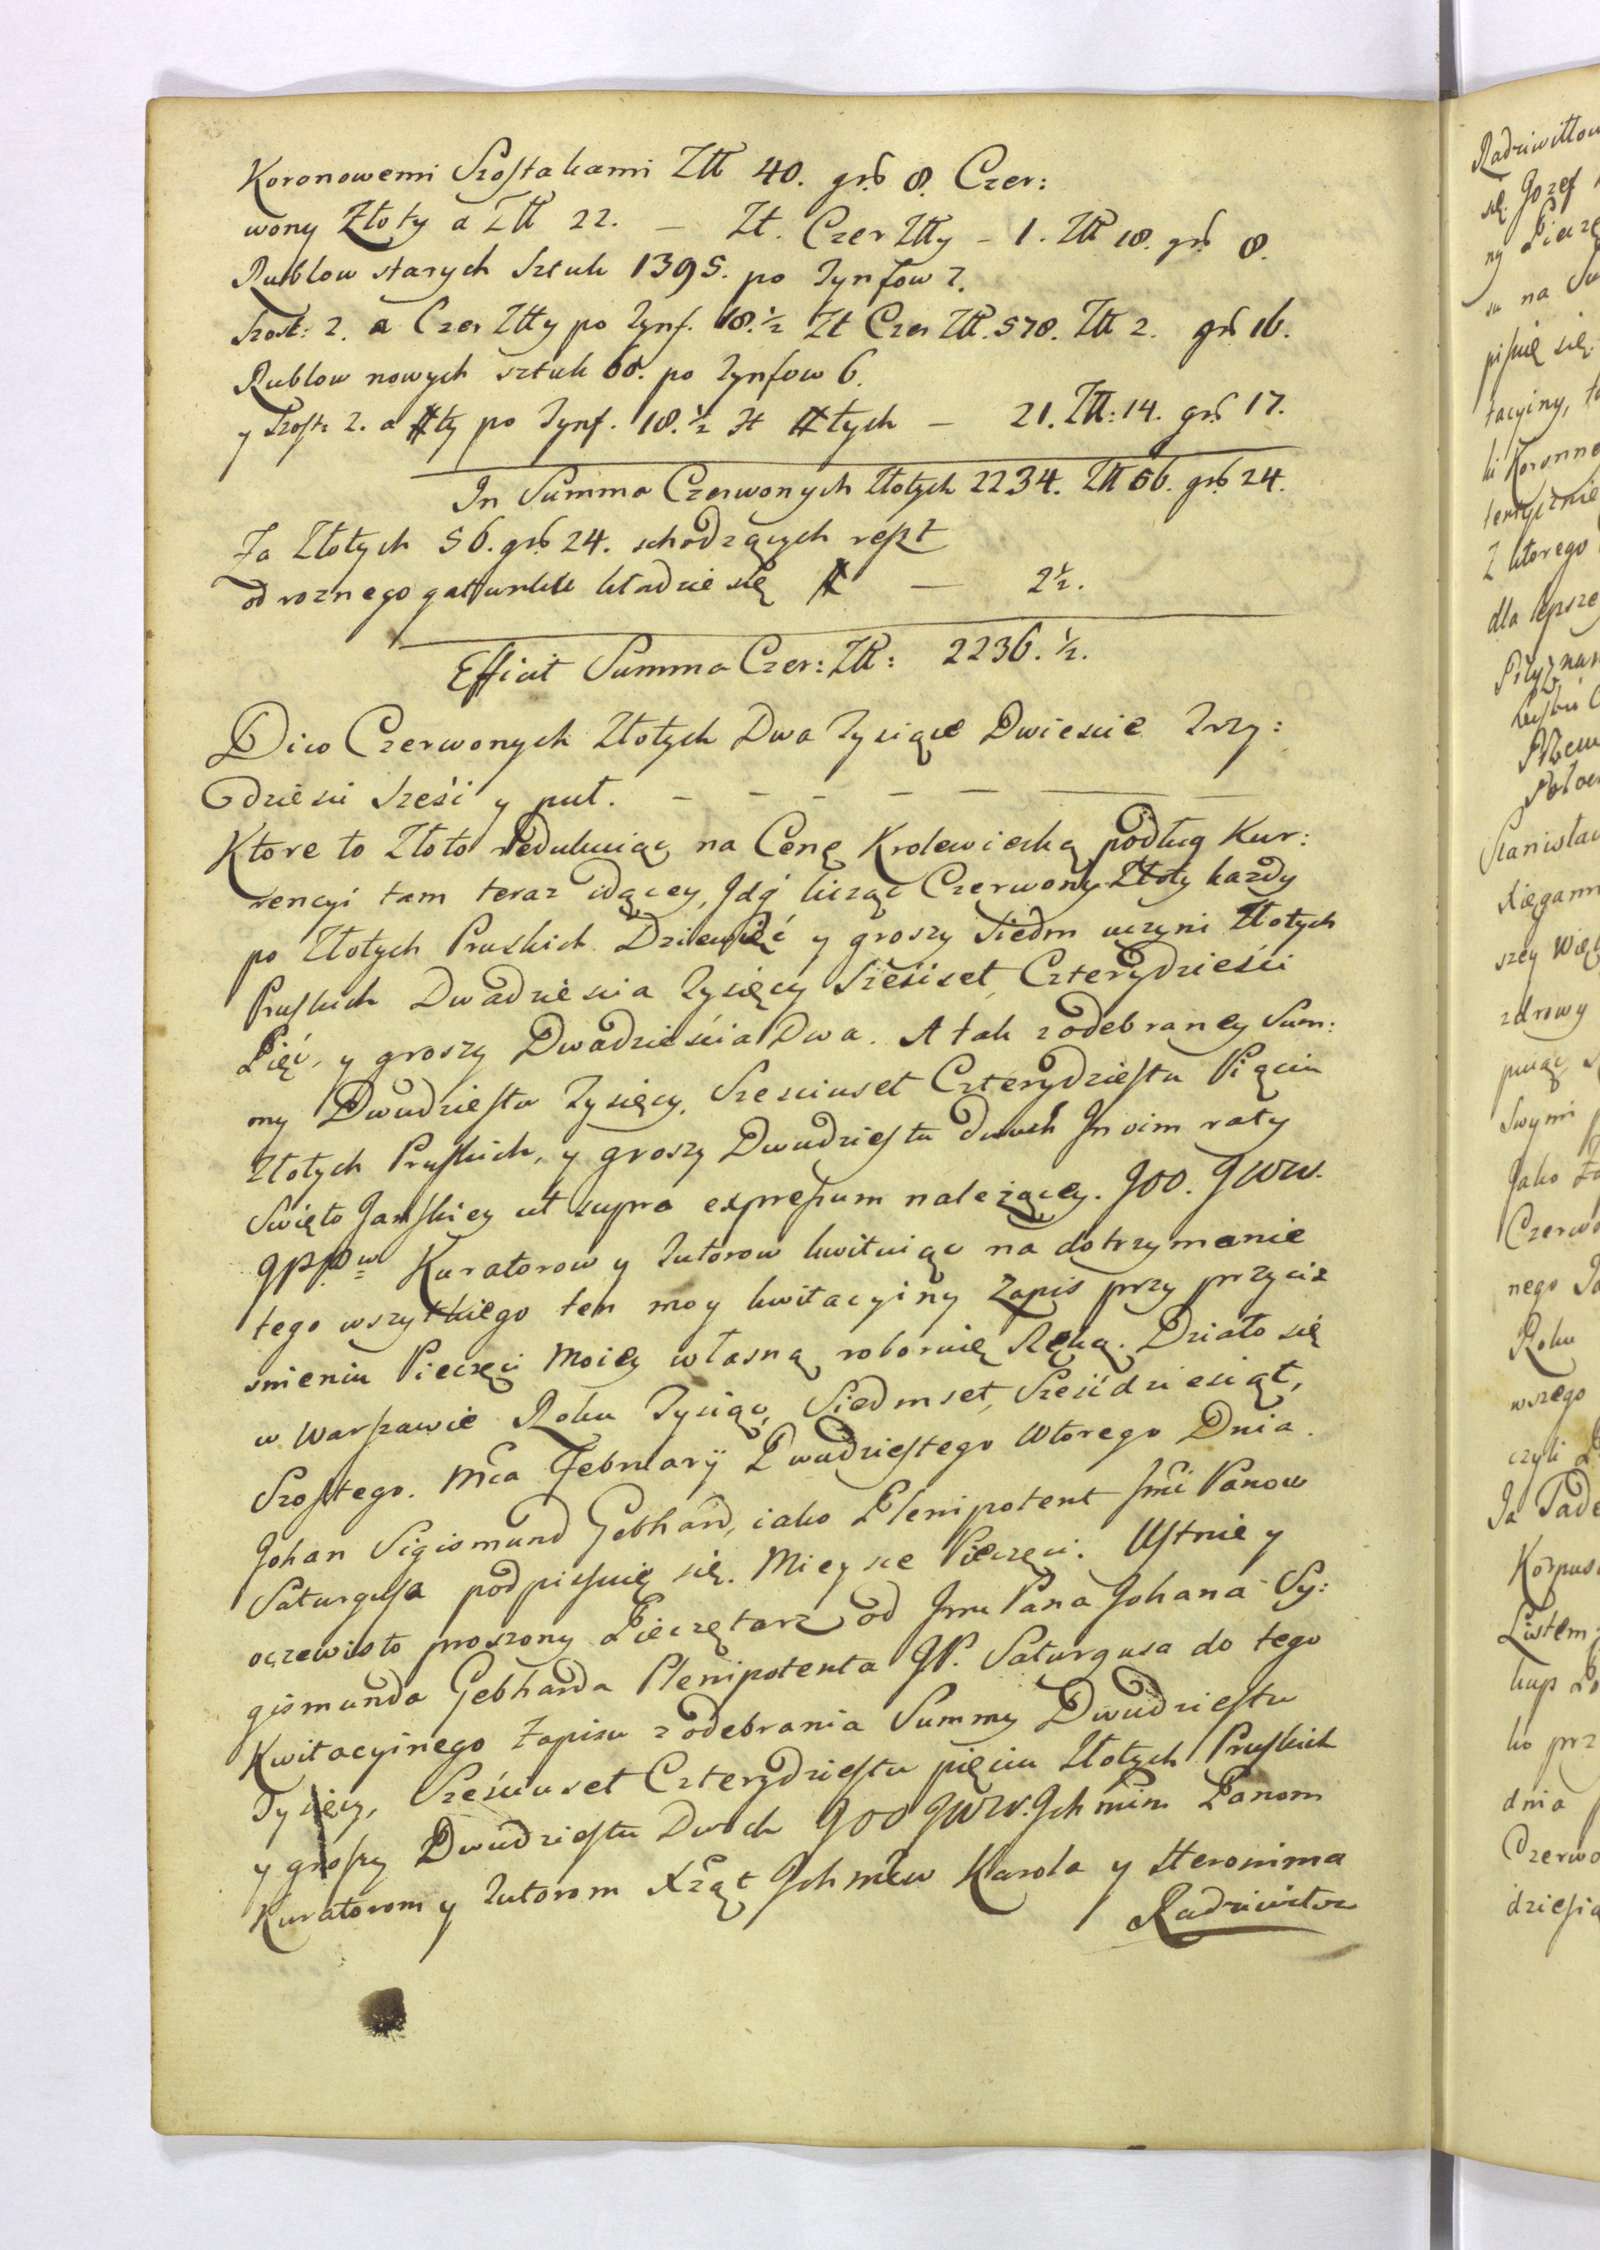 Koronowemi Szostakami Zł 40. gr. 8. Czer:
wony Złoty a Zł 22. — Zł. Czer Złty – 1. Zł 18. gr. 8.
Rublow starych Sztuk 1395. po Tynfow 7.
Szost: 2. a Czer Złty po Tynf. 18. ½ Zł Czer Zł. 578. Zł 2. gr. 16.
Rublow nowych sztuk 60. po Tynfow 6.
y Szost: 2. a #ty po Tynf. 18. ½ #tych — 21. Zł: 14. gr. 17.
In Summa Czerwonych Złotych 2234. Zł 56. gr. 24.
Za Złotych 56. gr. 24. schodzących reszt
od roznego gattunku kładzie się # — 2½.
Efficit Summa Czer: Zł: 2236. ½.
Dico Czerwonych Złotych Dwa Tysiące Dwieście Trzy:
dzieści Sześć y puł. — — — — — —
Ktore to Złoto redukuiąc na Cenę Krolewiecką podług Kur:
rencyi tam teraz idącey, licząc Czerwony Złoty każdy
po Złotych Pruskich Dziewięć y groszy Siedm uczyni Złotych
Pruskich Dwadzieścia Tysięcy Sześćset, Czterydzieści
Pięć, y groszy Dwadzieścia Dwa. A tak z odebraney Sum:
my Dwudziestu Tysięcy, Sześciuset Czterydziestu Pięciu
Złotych Pruskich, y groszy Dwudziestu dwuch In vim raty
Święto Jańskiey ut supra expressum należącey. JOO. JWW.
JPPow Kuratorow y Tutorow kwituiąc na dotrzymanie
tego wszytkiego ten moy kwitacyiny Zapis przy przyciś
snieniu Pieczęci Moiey własną roboruię Ręką. Działo się
w Warszawie Roku Tysiąc, Siedmset, Sześćdziesiąt,
Szostego. Mca February Dwudziestego Wtorego Dnia.
Johan Sigismund Gebhard, iako Plenipotent Jmći Panow
Saturgusa podpisuię się. Mieysce Pieczęci. Ustnie y
oczewisto proszony Pieczętarz od Jmci Pana Johana Sy:
gismunda Gebharda Plenipotenta JP. Saturgusa do tego
Kwitacyinego Zapisu z odebrania Summy Dwudziestu
Tysięcy, Sześciuset Czterydziestu pięciu Złotych Pruskich
y groszy Dwudziestu Dwoch JOO JWW. Ichmćm Panom
Kuratorom y Tutorom Xżąt Ichmćiow Karola y Heronima
Radziwiłow